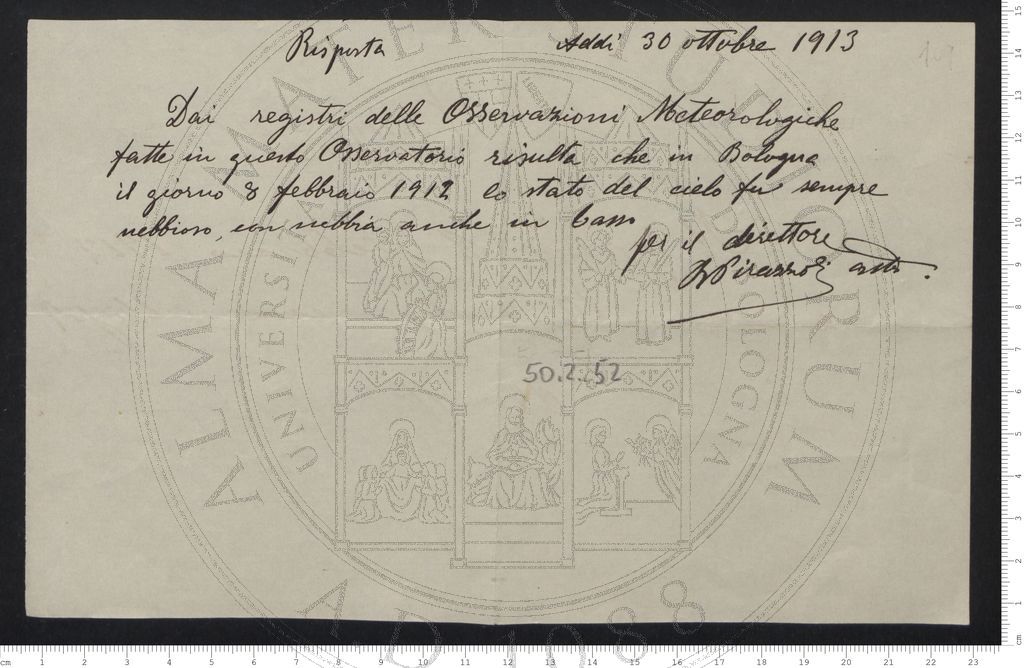 Risposta Addì 30 ottobre 1913
Dai registri delle Osservazioni Meteorologiche
fatte in questo Osservatorio risulta che in Bologna
il giorno 8 febbraio 1912 lo stato del cielo fu sempre
nebbioso, con nebbia anche in basso
per il direttore
Pirazzoli
50.2.52
ALMA MATER STUDIORUM
UNIVERSI BOLOGNA
A.D. 1088
cm 1 2 3 4 5 6 7 8 9 10 11 12 13 14 15 16 17 18 19 20 21 22 23
cm 1 2 3 4 5 6 7 8 9 10 11 12 13 14 15